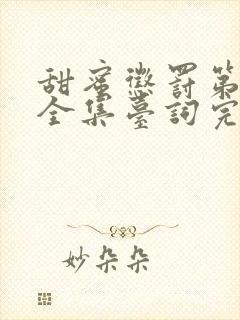 甜蜜懲罰第
全集臺詞完
妙朵朵